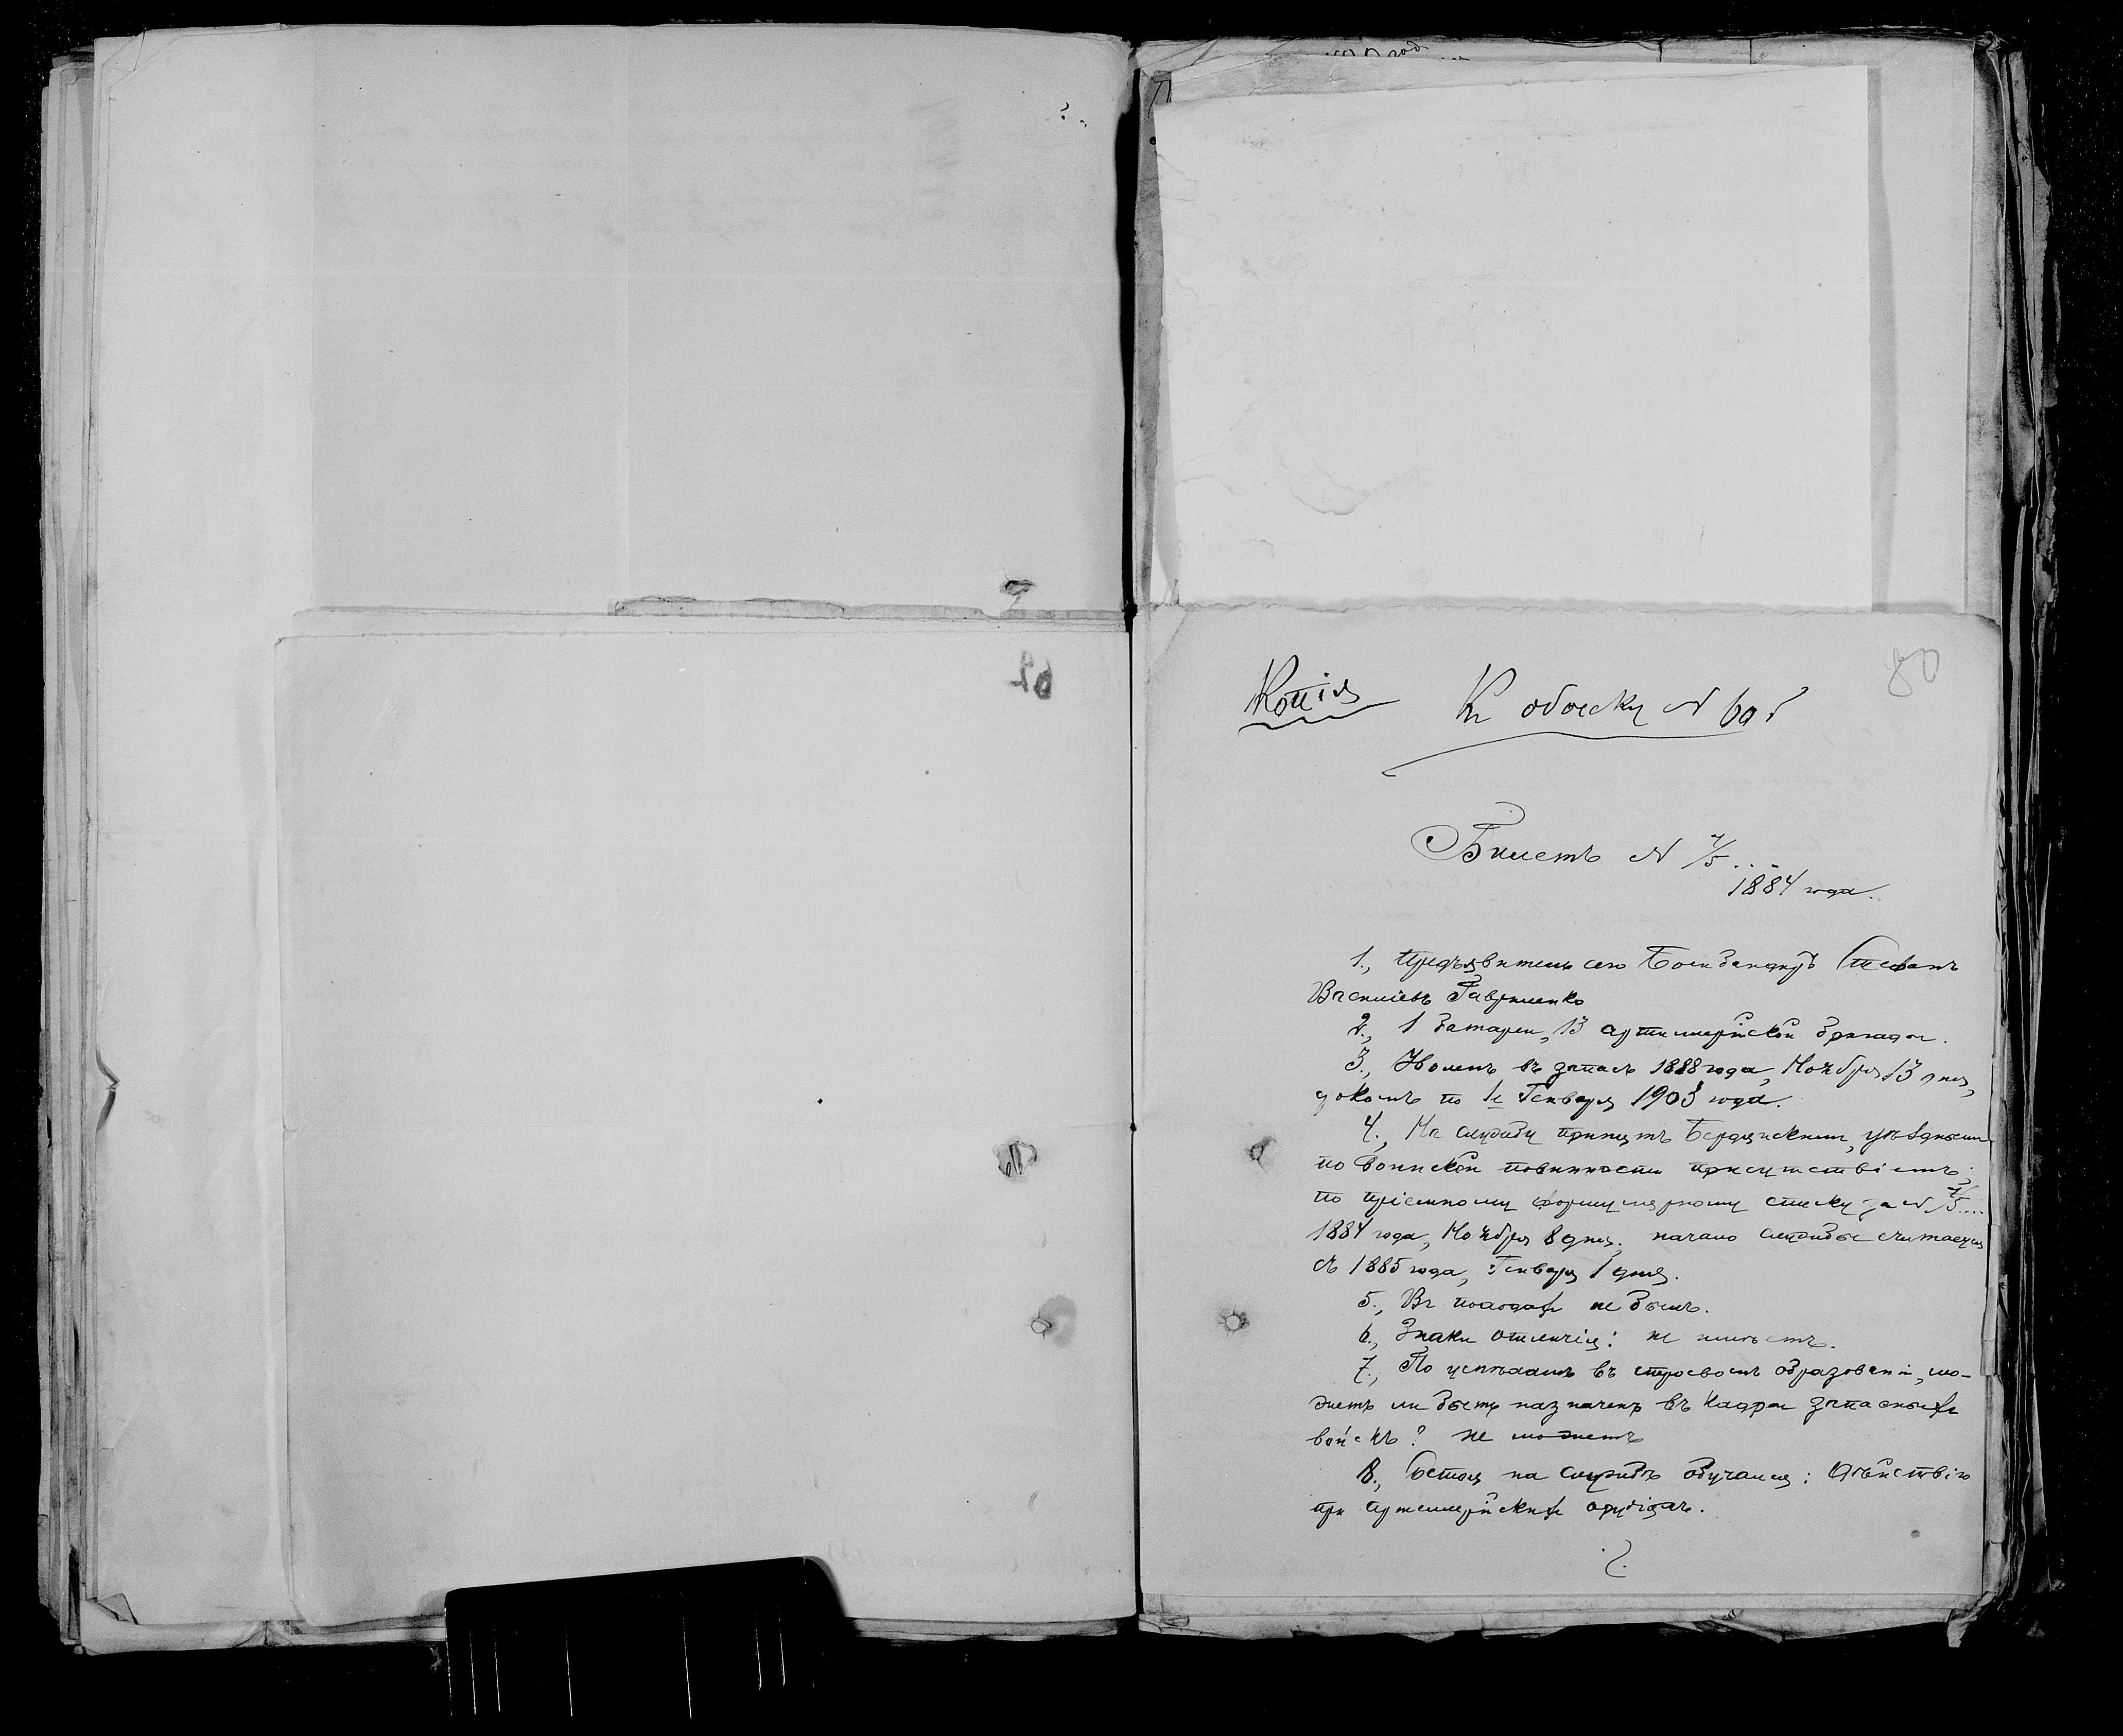 80
Копія
Къ обыску № 60
Билетъ № 7/5 ...
1884 года.
1., Предъявитель сего Бомбандиръ Стефанъ
Василіевъ Гавриленко
2., 1 батареи, 13 артиллерійской бригады.
3., Уволенъ въ запасъ 1888 года, Ноября 13 дня,
срокомъ по 1е Генваря 1903 года.
4., На службу принятъ Бердянскимъ, уѣзднымъ
по воинской повинности присутствіемъ
по пріемному формулярному списку за № 7/5 ....
1884 года, Ноября 8 дня; начало службы считается
съ 1885 года, Генваря 1 дня.
5., Въ походахъ не былъ.
6., Знаки отличія: не имѣетъ.
7., По успѣхамъ въ строевомъ образованіи, мо-
жетъ ли быть назначенъ въ кадры запасныхъ
войскъ? не можетъ
8., Состоя на службѣ обучался: дѣйствію
при артиллерійскихъ орудіяхъ.